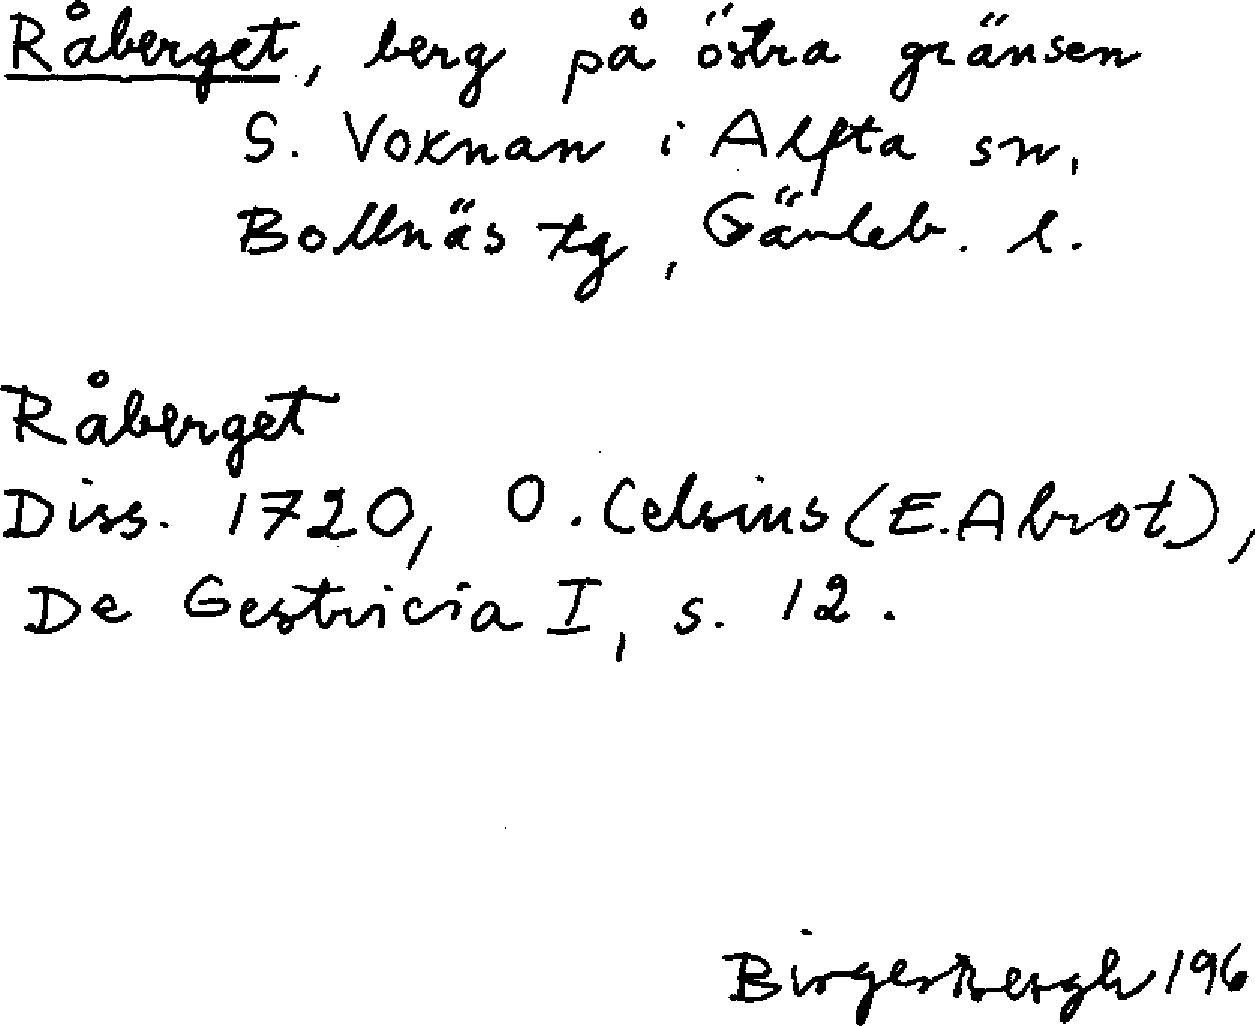 Råberget, berg på östra gränsen
S. Voxnan i Alfta sn,
Bollnäs tg, Gävleb. l.
Råberget
Diss. 1720, O. Celsius (E. Abrot),
De Gestricia I, s. 12.
Birger Bergh 196